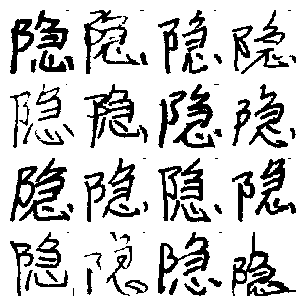 隐隐隐隐
隐隐隐隐
隐隐隐隐
隐隐隐隐